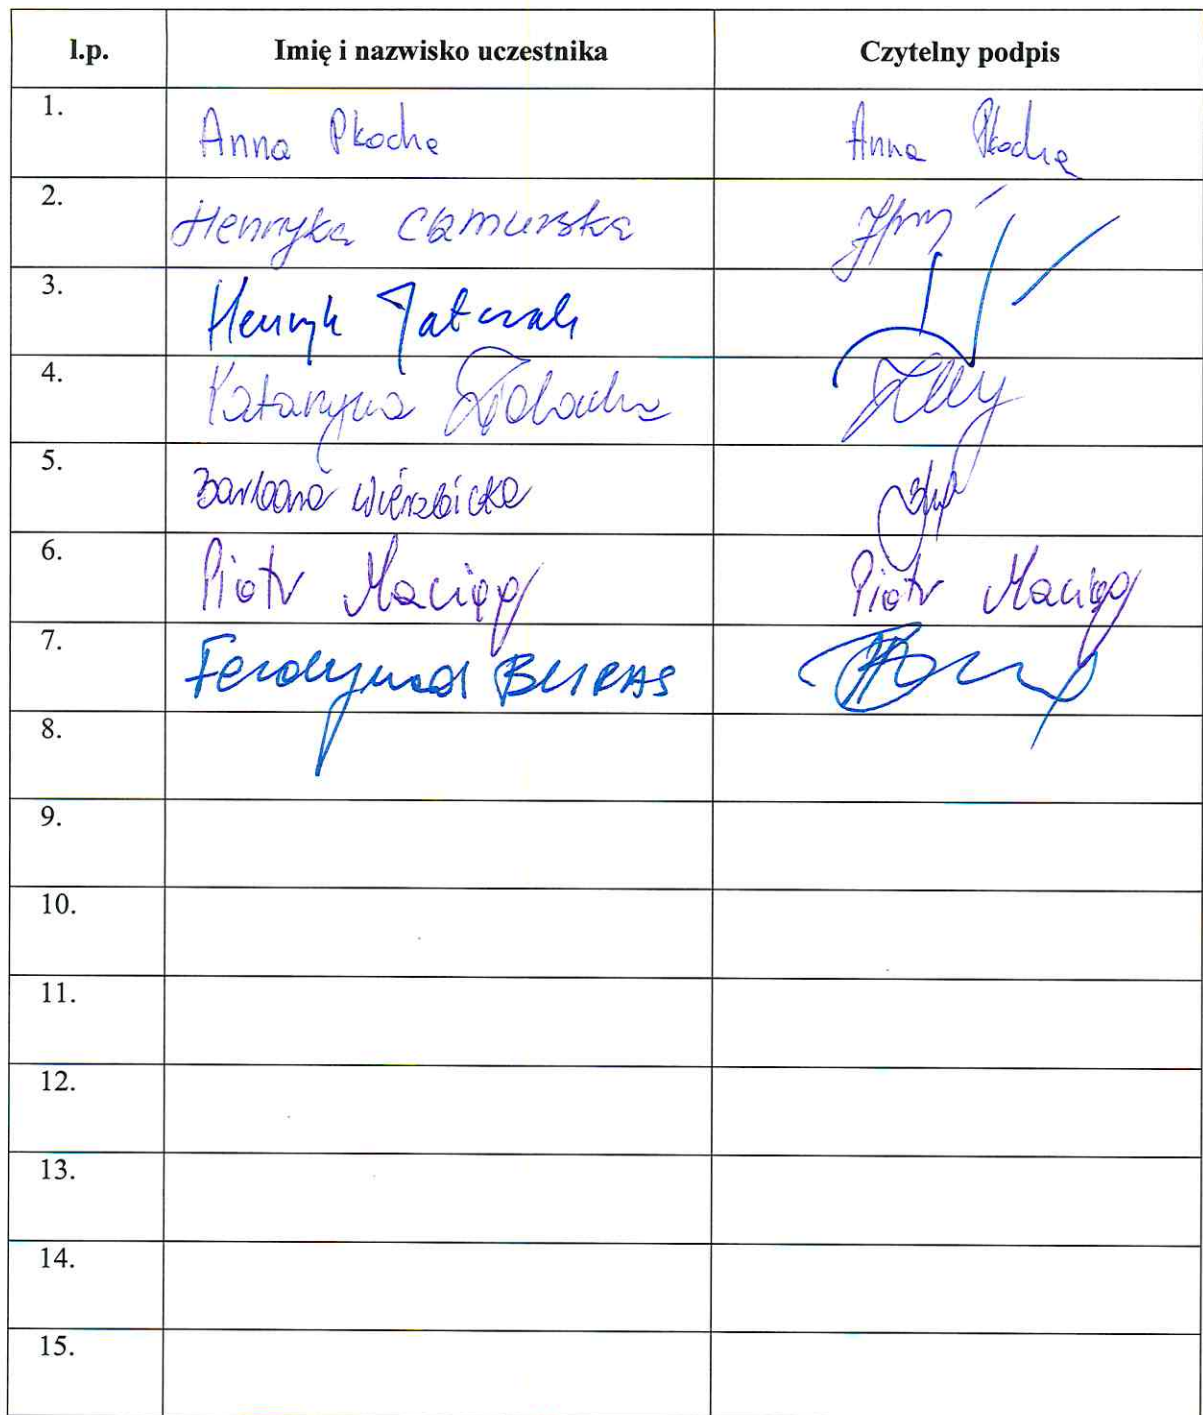 l.p. Imię i nazwisko uczestnika Czytelny podpis
1. Anna Płocha Anna Płocha
2. Henryka
3. Henryk
4. Katarzyna
5. Barbara Wierzbicka
6. Piotr Maciąg Piotr Maciąg
7. Ferdynand BURAS
8.
9.
10.
11.
12.
13.
14.
15.